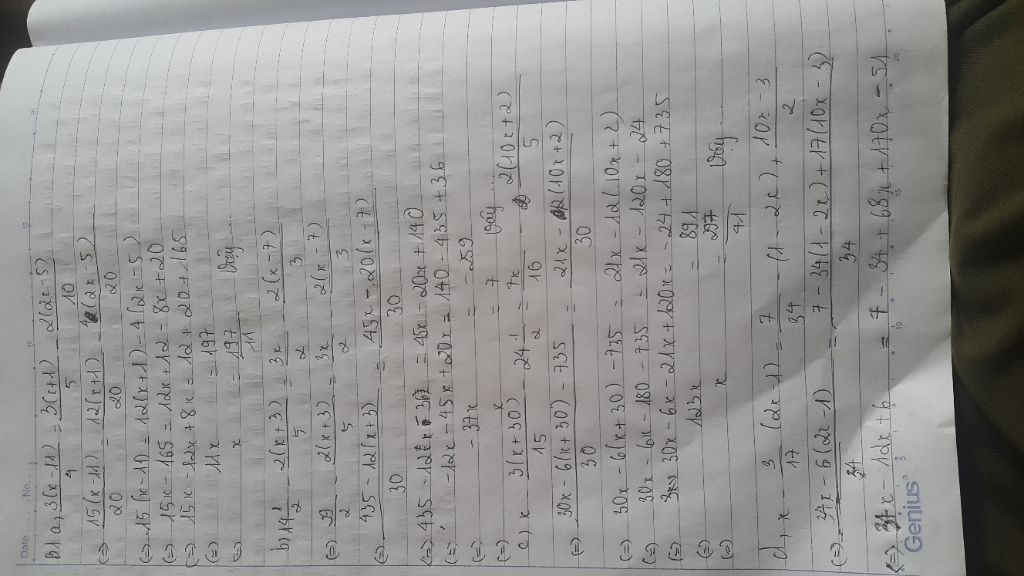 Date ....... No.....
b.1 a, 3(x-11)/4 = 3(x+1)/5 - 2(2x-5)/10
(=) 15(x-11)/20 = 12(x+1)/20 - 4(2x-5)/20
(=) 15(x-11) = 12(x+1) - 4(2x-5)
(=) 15x - 165 = 12x + 12 - 8x + 20
(=) 15x - 12x + 8x = 12 + 20 + 165
(=) 11x = 197
(=) x = 197/11 Vậy...
b, 14 1/2 - 2(x+3)/5 = 3x/2 - 2(x-7)/3
(=) 29/2 - 2(x+3)/5 = 3x/2 - 2(x-7)/3
(=) 435 - 12(x+3)/30 = 45x - 20(x-7)/30
(=) 435 - 12x - 36 = 45x - 20x + 140
(=) -12x - 45x + 20x = 140 - 435 + 36
(=) -37x = -259
(=) x = 7 Vậy...
c, x - 3(x+30)/15 - 24 1/2 = 7x/10 - 2(10x+2)/5
(=) 30x - 6(x+30) - 735/30 = 21x - 12(10x+2)/30
(=) 30x - 6(x+30) - 735 = 21x - 12(10x+2)
(=) 30x - 6x - 180 - 735 = 21x - 120x - 24
(=) 30x - 6x - 21x + 120x = -24 + 180 + 735
(=) 123x = 891
(=) x = 297/41 Vậy...
d, x - 3/17 (2x-1) = 7/34 - (1 - 2x) + 10x - 3/2
(=) 34x - 6(2x-1)/34 = 7 - 34(1-2x) + 17(10x-3)/34
(=) 34x - 12x + 6 = 7 - 34 + 68x + 170x - 51
Genius